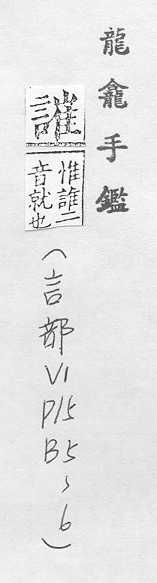 龍龕手鑑
惟誰二
音就也
(言部V1P15B5、6)